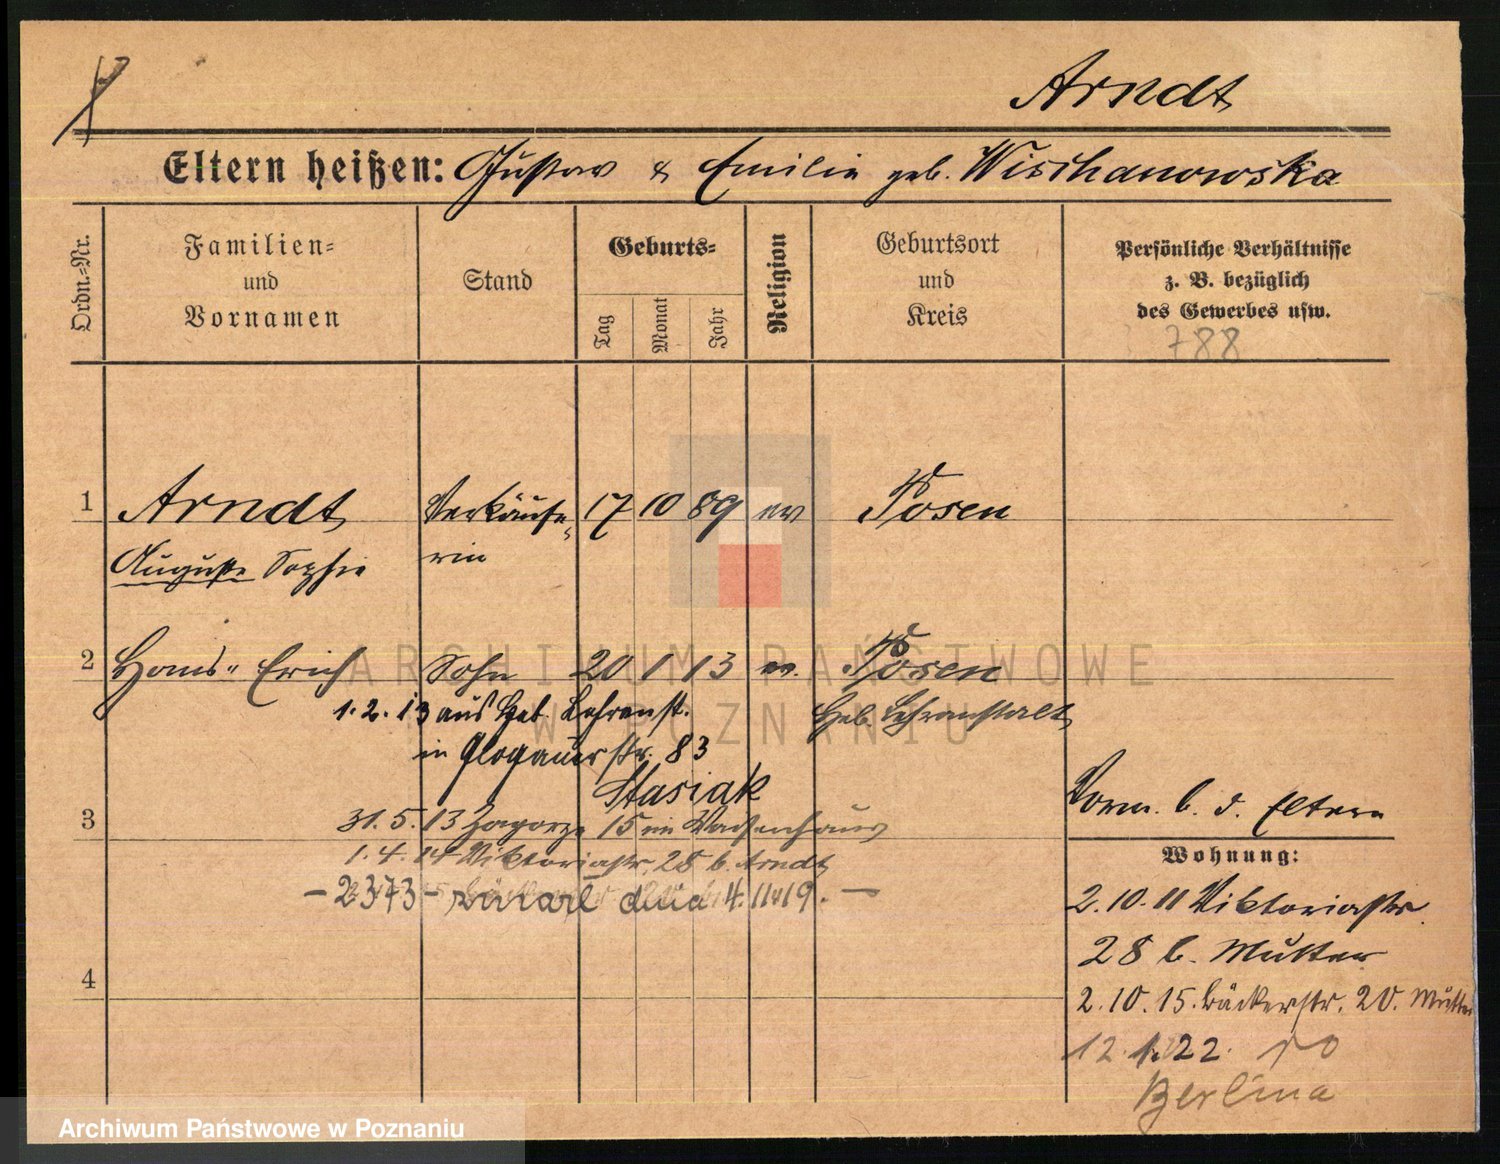 Arndt
Eltern heißen: Gustav & Emilie geb. Wischanowska
Ordn.-Nr.
Familien-
und
Vornamen
Stand
Geburts-
Tag
Monat
Jahr
Religion
Geburtsort
und
Kreis
Persönliche Verhältnisse
z. B. bezüglich
des Gewerbes usw.
788
1 Arndt Verkäufe- 17 10 89 ev Posen
Auguste Sophie rin
2 Hans-Erich Sohn 20 1 13 ev. Posen
1. 2. 13 aus Heb. Lehranst. Heb. Lehranstalt
in Glogauerstr. 83
Stasiak
3 31. 5. 13 Zagorze 15 im Waisenhaus
1. 4. 14 Viktoriastr. 28 b. Arndt
- 2373 - zmarł dnia 4. 11 19. -
4
Vorm. b. d. Eltern
Wohnung:
2. 10. 11 Viktoriastr.
28 b. Mutter
2. 10. 15. Bäckerstr. 20. Mutter
12. 1. 22. do
Berlina
ARCHIWUM PAŃSTWOWE
W POZNANIU
Archiwum Państwowe w Poznaniu